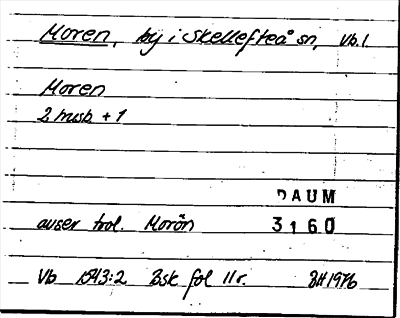 Moren, by i Skellefteå sn, Vb.l.
Moren
2 husb + 1
DAUM
avser trol. Morön 3160
Vb 1543:2 Bsk fol 11r. BH 1976